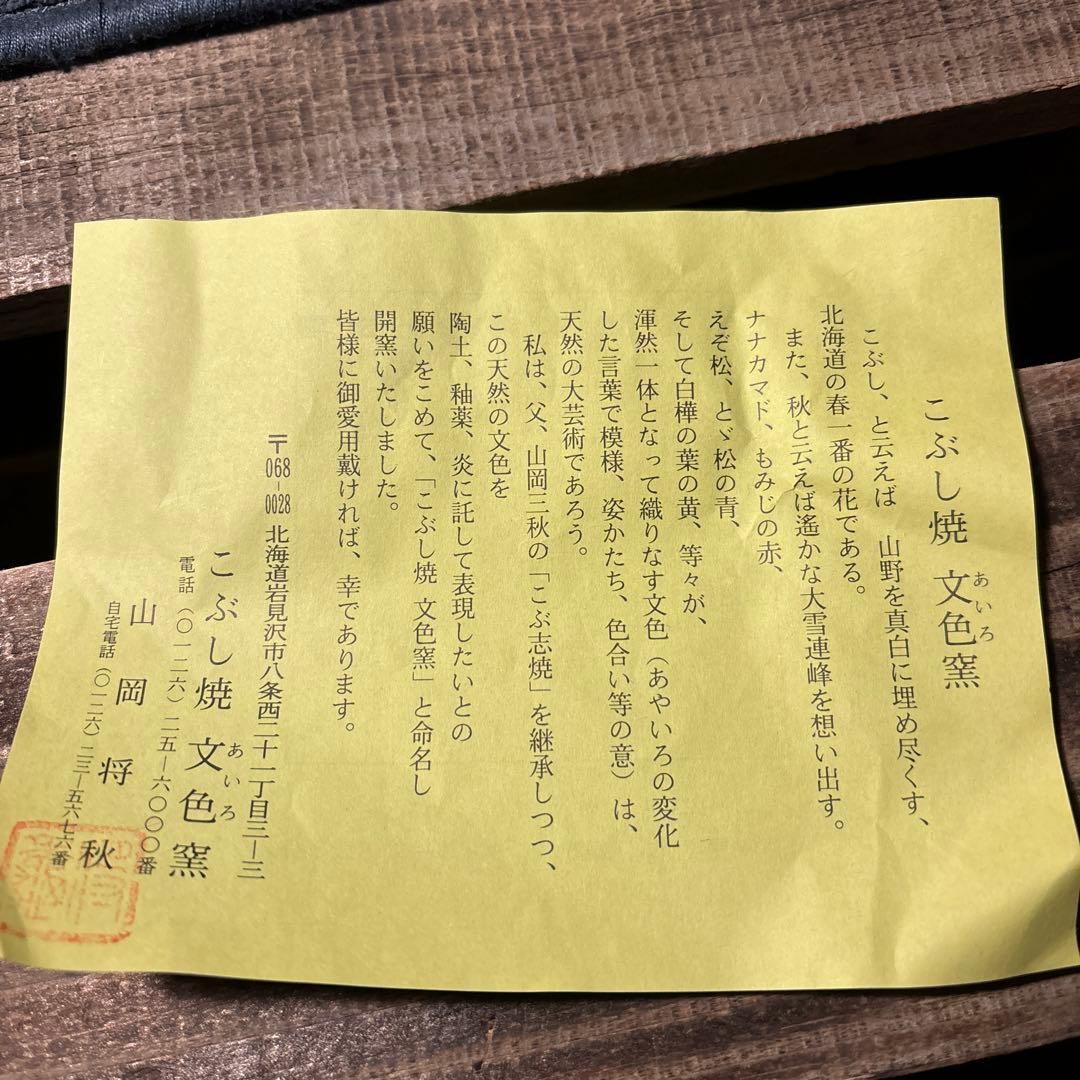 こぶし焼 文色窯
あいろ
こぶし、と云えば 山野を真白に埋め尽くす、
北海道の春一番の花である。
また、秋と云えば遙かな大雪連峰を想い出す。
ナナカマド、もみじの赤、
えぞ松、とゞ松の青、
そして白樺の葉の黄、等々が、
渾然一体となって織りなす文色（あやいろの変化
した言葉で模様、姿かたち、色合い等の意）は、
天然の大芸術であろう。
私は、父、山岡三秋の「こぶ志焼」を継承しつつ、
この天然の文色を
陶土、釉薬、炎に託して表現したいとの
願いをこめて、「こぶし焼 文色窯」と命名し
開窯いたしました。
皆様に御愛用戴ければ、幸であります。
〒068-0028 北海道岩見沢市八条西二十一丁目三―三
こぶし焼 文色窯
あいろ
電話（〇一二六）二五―六〇〇〇番
山岡将秋
自宅電話（〇一二六）二三―五六七六番